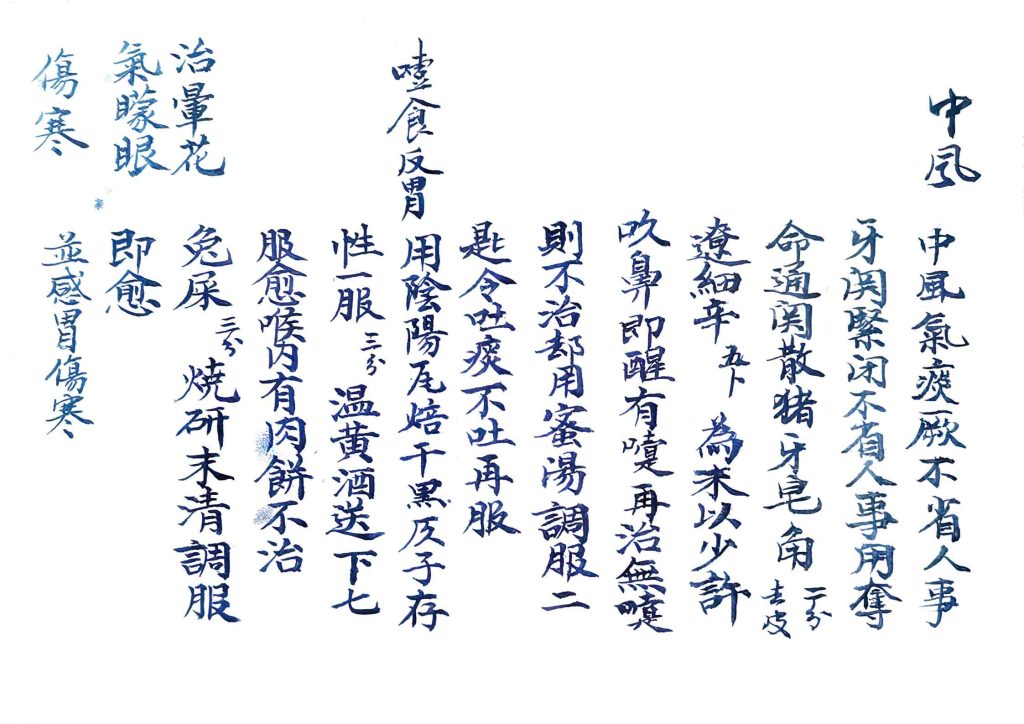 中風 中風氣痰厥不省人事
牙関緊闭不省人事用奪
命通関散猪牙皂角 二分 去皮
遼細辛 五卜 為末以少許
吹鼻即醒有嚏再治無嚏
則不治却用蜜湯調服二
匙令吐痰不吐再服
噎食反胃 用陰陽瓦焙干黑灰子存
性一服 三分 温黄酒送下七
服愈喉内有肉餅不治
治暈花 兔屎 三分 焼研末清調服
氣矇眼 即愈
傷寒 並感胃傷寒